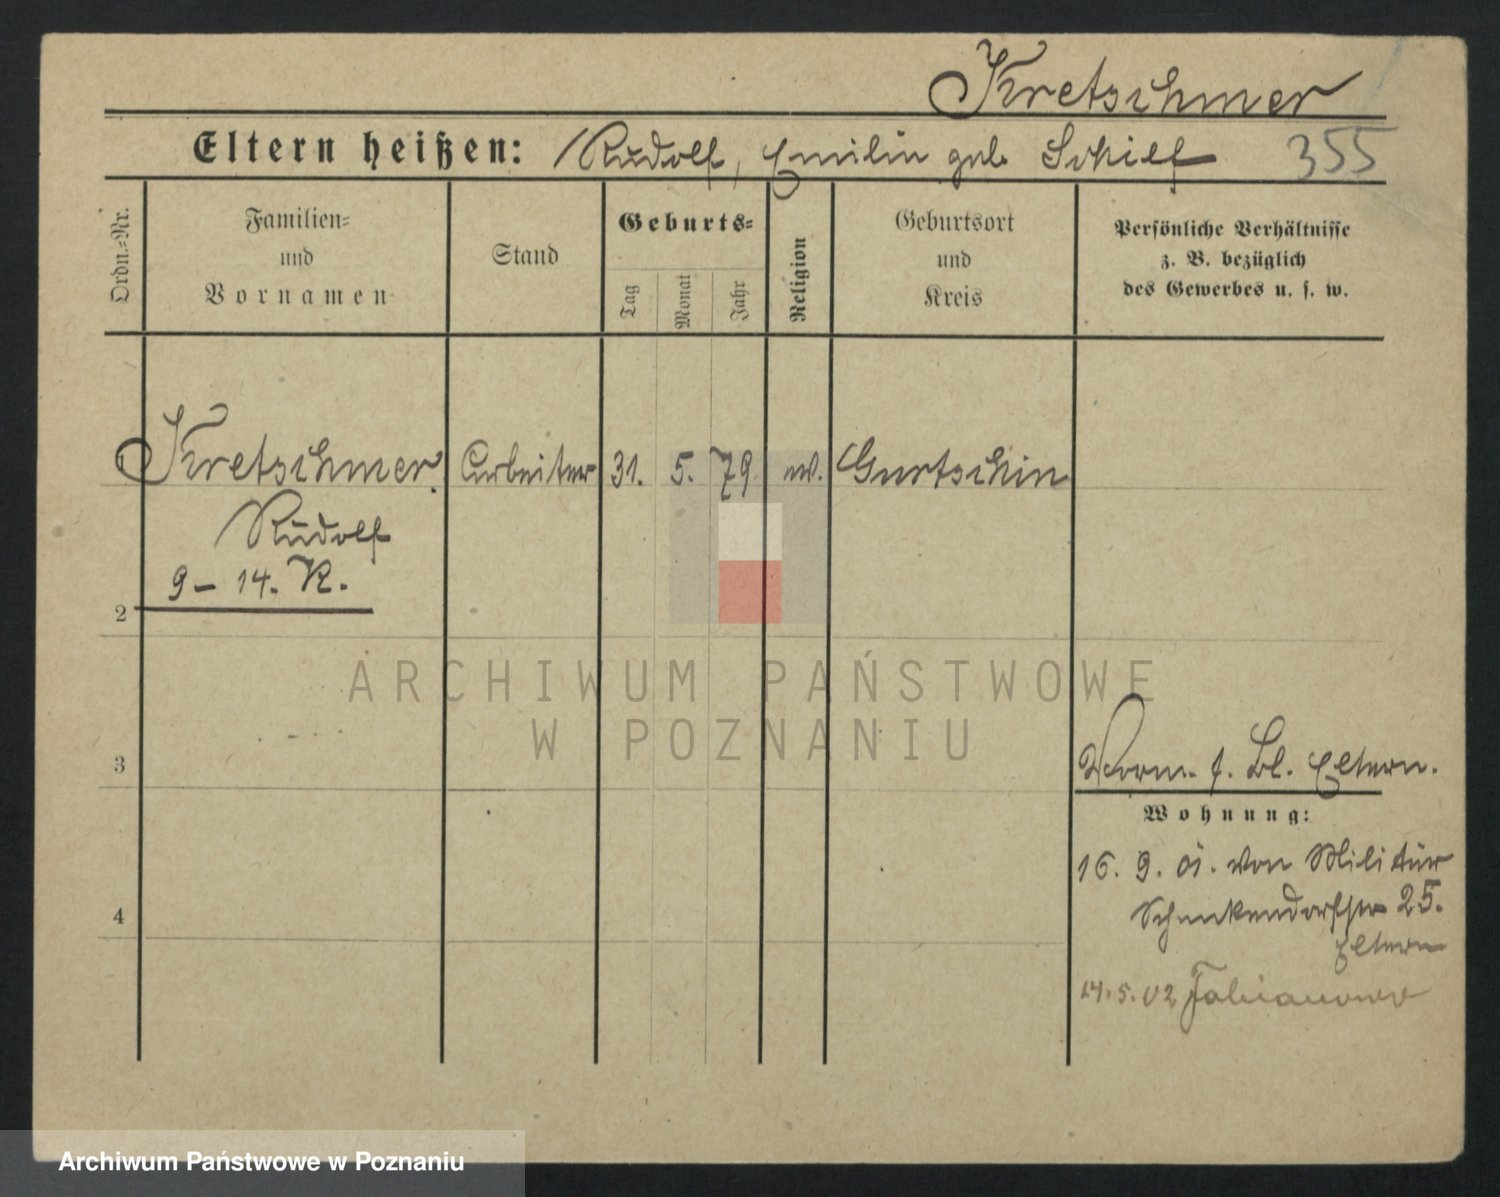 Kretschmer
Eltern heißen: Rudolf, Emilie geb Schilf 355
Ordn.=Nr.
Familien=
und
Vornamen
Stand
Geburts=
Tag
Monat
Jahr
Religion
Geburtsort
und
Kreis
Persönliche Verhältnisse
z. B. bezüglich
des Gewerbes u. s. w.
Kretschmer. Arbeiter 31. 5. 79 ev. Gurtschin
Rudolf
9 – 14. K.
2
ARCHIWUM PAŃSTWOWE
W POZNANIU
3
Vorm. s. Bl. Eltern.
Wohnung:
16. 9. 01. von Militär
4
Schenkendorfstr 25.
Eltern
14. 5. 02 Fabianowo
Archiwum Państwowe w Poznaniu